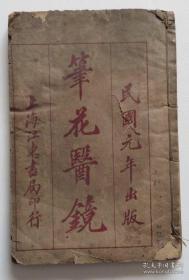 民國元年出版
筆花醫鏡
上海江東書局印行